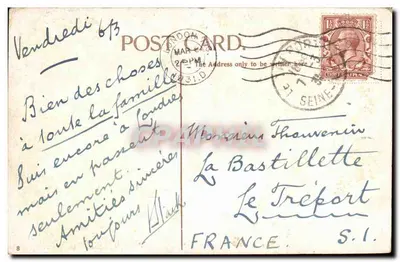 Vendredi 6/3
POST CARD.
The Address only to be written here
Bien des choses
à toute la famille
Suis encore à Londres
mais en passant
seulement.
Amitiés sincères
toujours
Monsieur Thauvenin
La Bastillette
Le Tréport
FRANCE. S. I.
SEINE
8